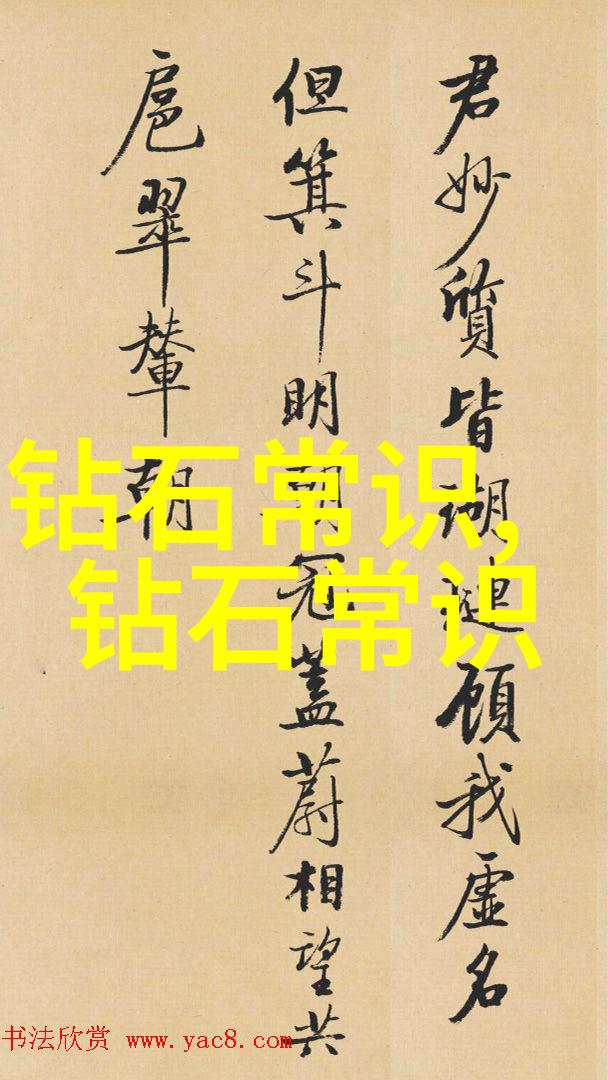 君妙質皆瑚璉顧我虚名
但箕斗明朝冠蓋蔚相望共
扈翠輦朝
钻石常识,
钻石常识
书法欣赏 www.yac8.com